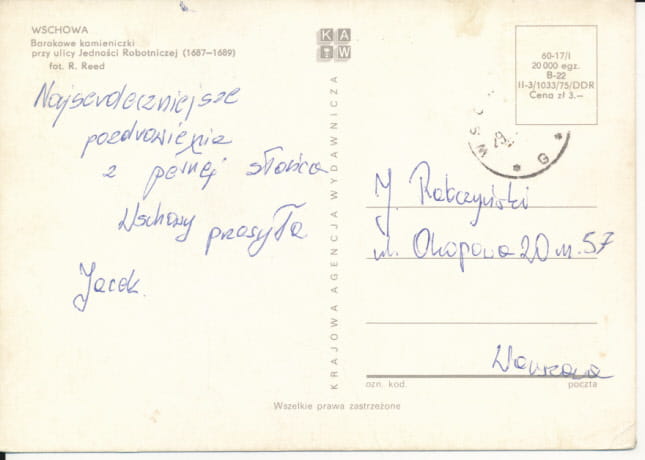 WSCHOWA
Barokowe kamieniczki
przy ulicy Jedności Robotniczej (1687—1689)
fot. R. Reed
Najserdeczniejsze
pozdrowienia
z pełnej słońca
Wschowy przesyła
Jacek.
KAW
KRAJOWA AGENCJA WYDAWNICZA
60-17/I
20 000 egz.
B-22
II-3/1033/75/DDR
Cena zł 3.—
WSC
29.
* G *
J. Rabczyński
ul. Okopowa 20 m. 57
Warszawa
ozn. kod. poczta
Wszelkie prawa zastrzeżone